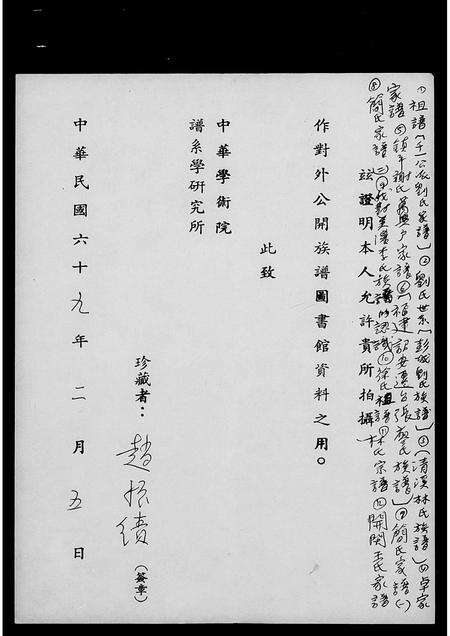 (1) 祖譜(千一公派劉氏家譜) (2) 劉氏世系(彭城劉氏族譜) (3) (清溪林氏族譜) (4) 卓家
家譜 (5) 鎮平謝氏萬興戶家譜 (6) (福建詔安遷台張廖氏族譜) (7) 簡氏家譜(一)
(8) 簡氏家譜(二) (9) 我對李氏族譜的認識 (10) 徐氏祖譜 (11) 林氏宗譜 (12) 開閩王氏家譜
茲證明本人允許貴所拍攝
作對外公開族譜圖書館資料之用。
此致
中華學術院
譜系學研究所
珍藏者:趙振績(簽章)
中華民國六十九年二月五日